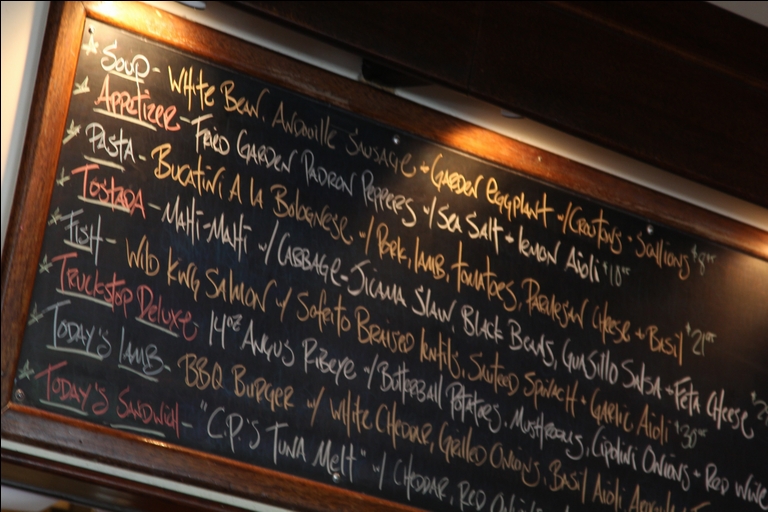 * Soup - White Bean, Andouille Sausage + Garden Eggplant w/ Croutons + Scallions $8
* Appetizer - Fried Garden Padron Peppers w/ Sea Salt + Lemon Aioli $10
* Pasta - Bucatini A la Bolognese w/ Pork, lamb, tomatoes, Parmesan Cheese + Basil $21
* Tostada - Mahi-Mahi w/ Cabbage-Jicama Slaw, Black Beans, Guasillo Salsa + Feta Cheese
* Fish - Wild King Salmon w/ Sofrito Braised lentils, Sauteed Spinach + Garlic Aioli $30
* Truckstop Deluxe - 14oz Angus Ribeye w/ Butterball Potatoes, Mushrooms, Cipolini Onions + Red Wine
* Today's Lamb - BBQ Burger w/ White Cheddar, Grilled Onions, Basil Aioli
* Today's Sandwich - "C.P.'s Tuna Melt" w/ Cheddar, Red